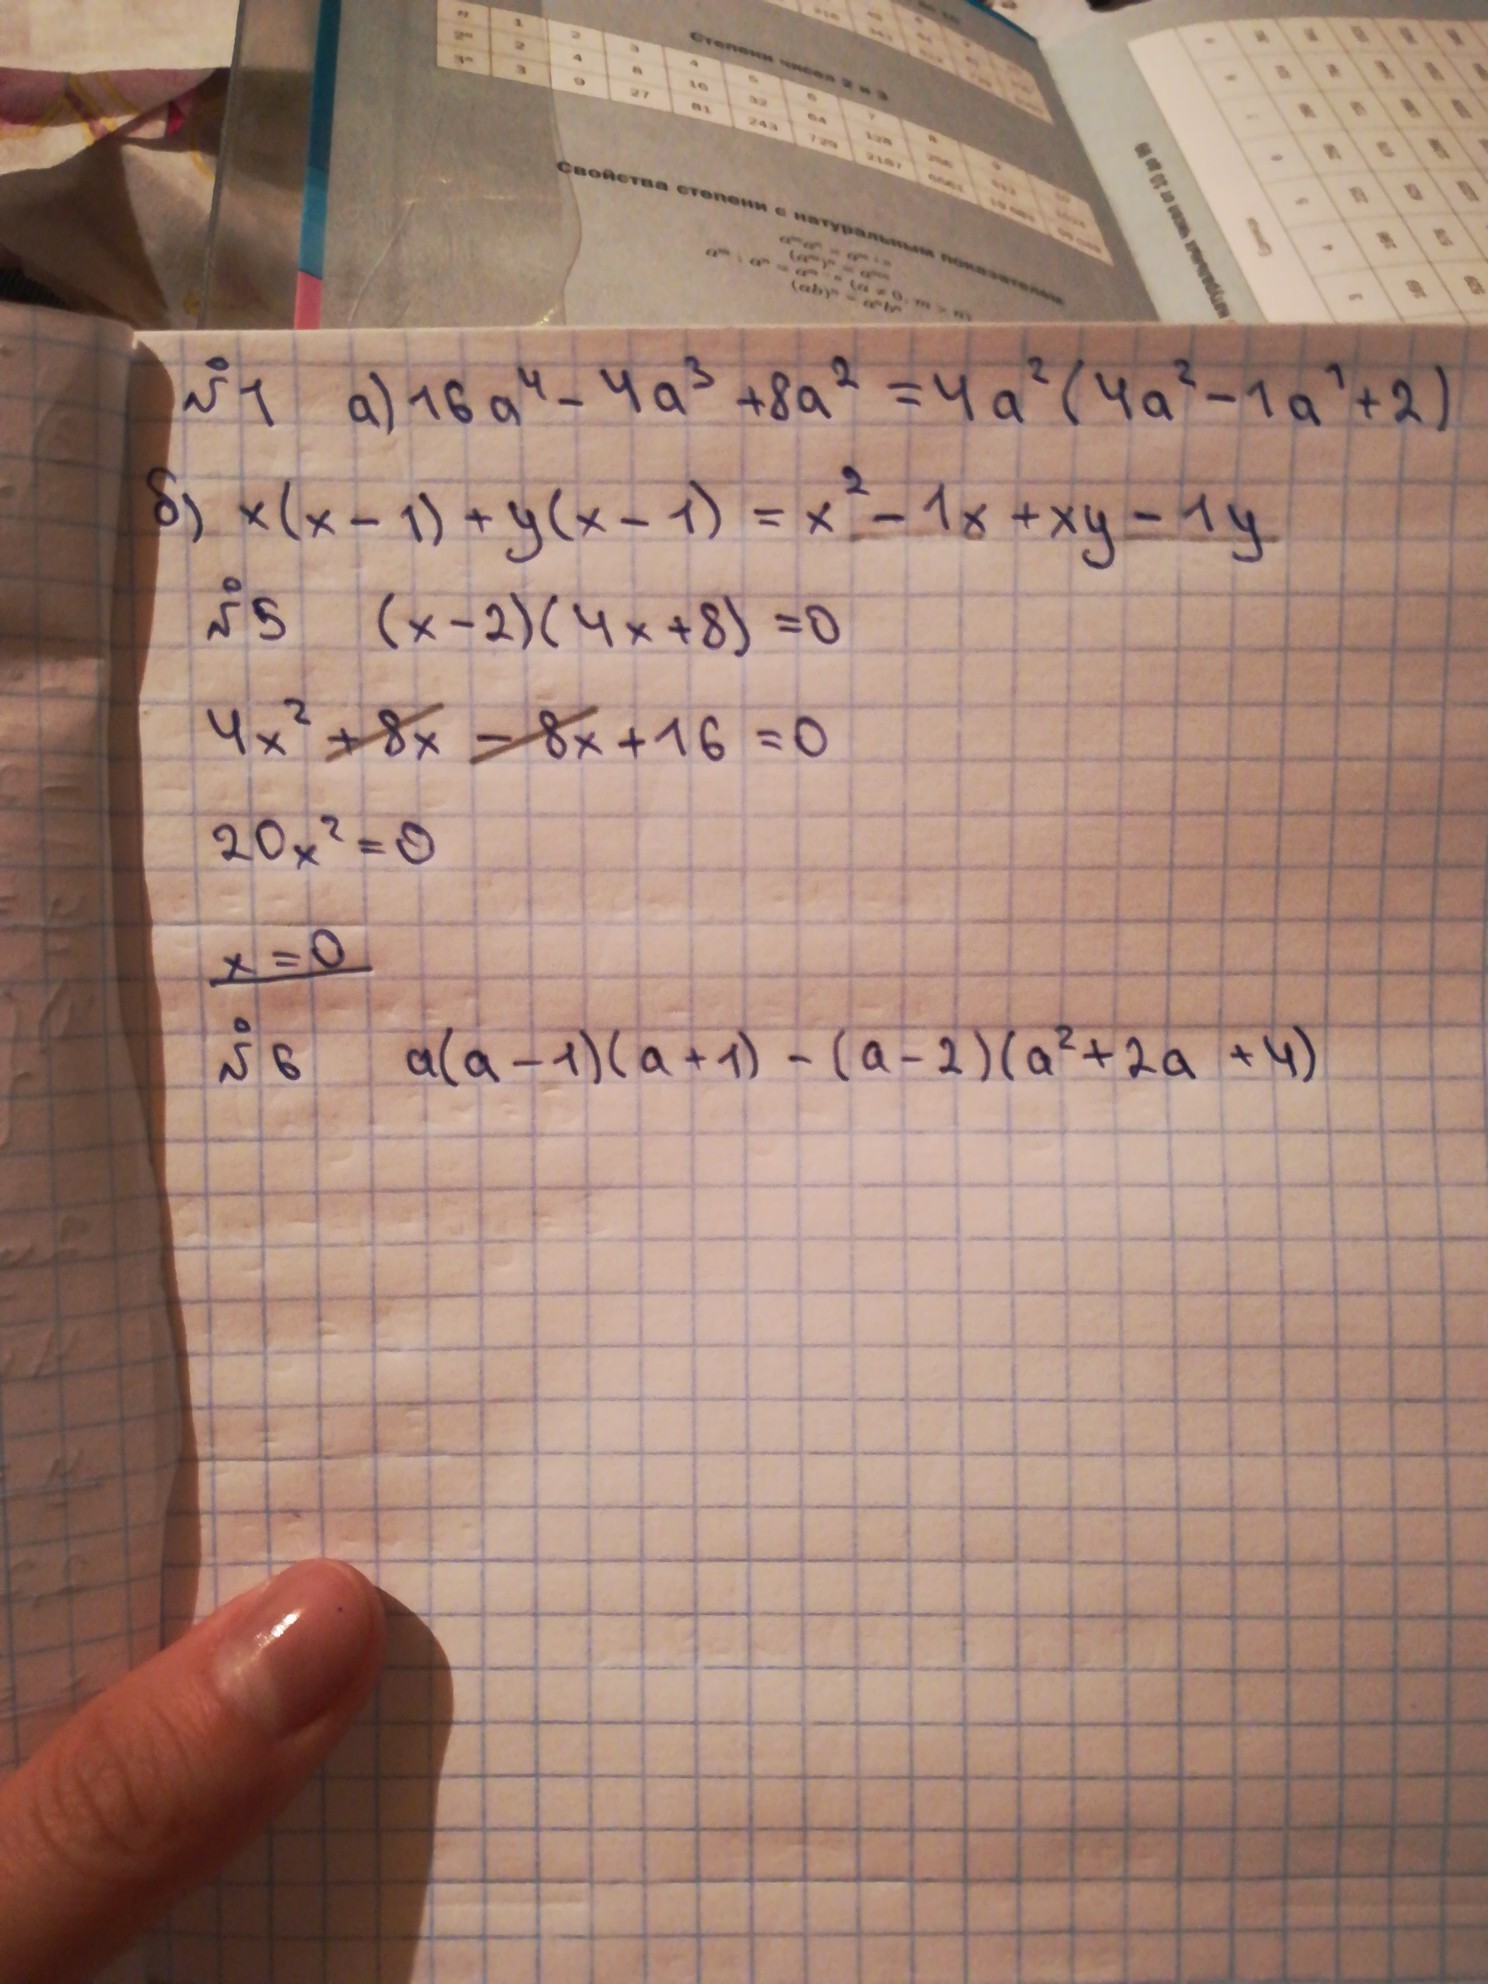 n 1 2 3 4 5 6 7 8 9 10
2ⁿ 2 4 8 16 32 64 128 256 512 1024
3ⁿ 3 9 27 81 243 729 2187 6561
Степени чисел 2 и 3
Свойства степени с натуральным показателем
aᵐaⁿ = aᵐ⁺ⁿ
(aᵐ)ⁿ = aᵐⁿ
aᵐ : aⁿ = aᵐ⁻ⁿ (a ≠ 0, m > n)
(ab)ⁿ = aⁿbⁿ
№1 а) 16a⁴ - 4a³ + 8a² = 4a²(4a² - 1a¹ + 2)
б) x(x - 1) + y(x - 1) = x² - 1x + xy - 1y
№5 (x - 2)(4x + 8) = 0
4x² + 8x - 8x + 16 = 0
20x² = 0
x = 0
№6 a(a - 1)(a + 1) - (a - 2)(a² + 2a + 4)